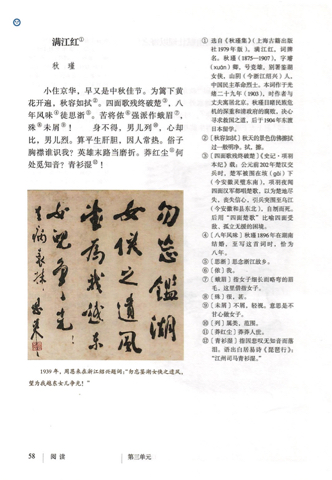 满江红①
秋 瑾
小住京华，早又是中秋佳节。为篱下黄
花开遍，秋容如拭②。四面歌残终破楚③，八
年风味④徒思浙⑤。苦将侬⑥强派作蛾眉⑦，
殊⑧未屑⑨！ 身不得，男儿列⑩，心却
比，男儿烈。算平生肝胆，因人常热。俗子
胸襟谁识我？英雄末路当磨折。莽红尘⑪何
处觅知音？青衫湿⑫！
① 选自《秋瑾集》（上海古籍出版
社1979年版）。满江红，词牌
名。秋瑾（1875—1907），字璿
（xuán）卿，号竞雄，别署鉴湖
女侠，山阴（今浙江绍兴）人，
中国民主革命烈士。本词作于光
绪二十九年（1903），时作者与
丈夫寓居北京。秋瑾目睹民族危
机的深重和清政府的腐败，决心
寻求救国之道，后于1904年东渡
日本留学。
② ［秋容如拭］秋天的景色仿佛擦拭
过一般明净。拭，擦。
③ ［四面歌残终破楚］《史记·项羽
本纪》载：公元前202年楚汉交
兵时，楚军被围在垓（gāi）下
（今安徽灵璧东南），项羽夜闻
四面汉军都唱楚歌，以为楚地尽
失，丧失信心，引兵突围至乌江
（今安徽和县东北），自刎而死。
后用“四面楚歌”比喻四面受
敌、孤立无援的困境。
④ ［八年风味］秋瑾1896年在湖南
结婚，至写这首词时，恰为
八年。
⑤ ［思浙］思念浙江故乡。
⑥ ［侬］我。
⑦ ［蛾眉］指女子细长而略弯的眉
毛，这里借指女子。
⑧ ［殊］很，甚。
⑨ ［未屑］不屑，轻视，意思是不
甘心做女子。
⑩ ［列］属类，范围。
⑪ ［莽红尘］莽莽人世。
⑫ ［青衫湿］指因悲叹无知音而落
泪。语出白居易诗《琵琶行》：
“江州司马青衫湿。”
勿忘鉴湖
女侠之遗风
望为我越东
女儿争光！
1939年，周恩来在浙江绍兴题词：“勿忘鉴湖女侠之遗风，
望为我越东女儿争光！”
58 阅读 第三单元